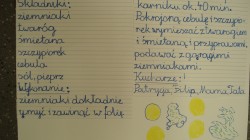 Składniki:
ziemniaki
twaróg
śmietana
szczypiorek
cebula
sól, pieprz
Wykonanie:
ziemniaki dokładnie
umyć i zawinąć w folię
karniku ok. 40 min.
Pokrojoną cebulę i szczypio-
rek wymieszać z twarogiem
i śmietaną, i przyprawami,
podawać z gorącymi
ziemniakami.
Kucharze:
Patrycja, Filip, Mama, Tata